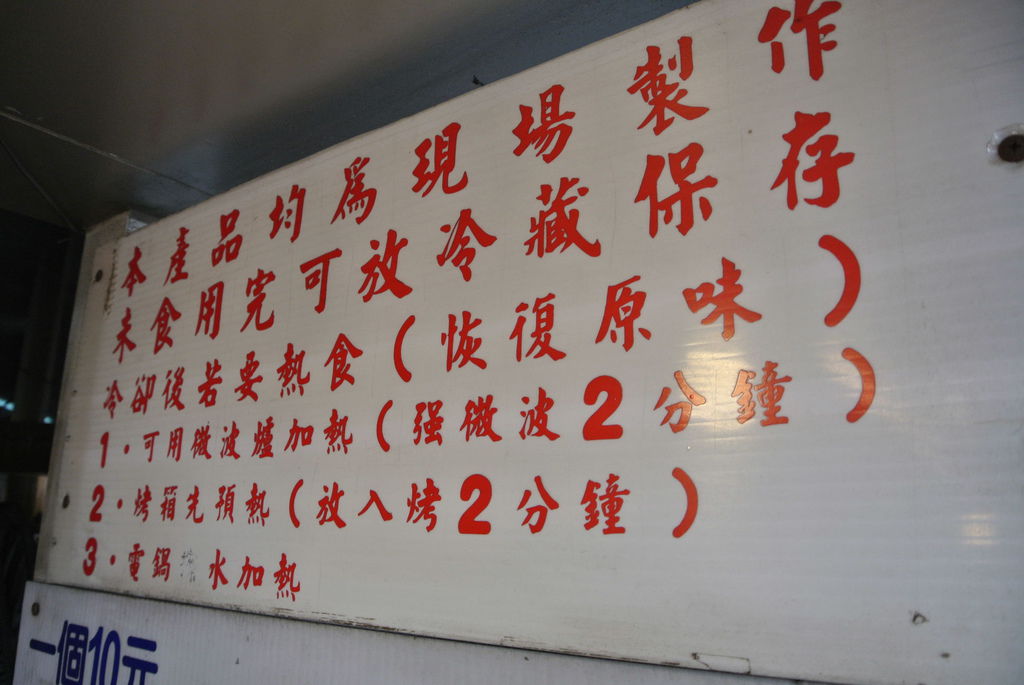 本產品均為現場製作
未食用完可放冷藏保存
冷卻後若要熱食(恢復原味)
1.可用微波爐加熱(强微波2分鐘)
2.烤箱先預熱(放入烤2分鐘)
3.電鍋 水加熱
一個10元